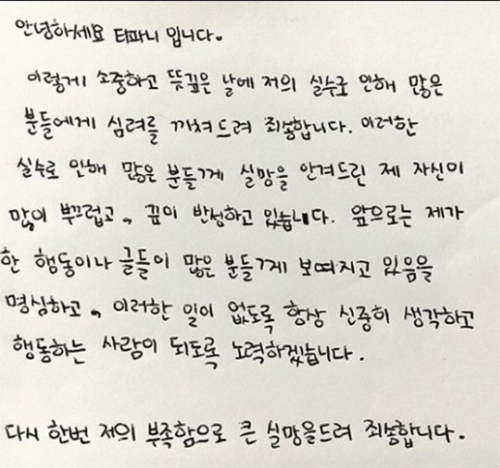 안녕하세요 티파니 입니다.
이렇게 소중하고 뜻깊은 날에 저의 실수로 인해 많은
분들에게 심려를 끼쳐드려 죄송합니다. 이러한
실수로 인해 많은 분들께 실망을 안겨드린 제 자신이
많이 부끄럽고, 깊이 반성하고 있습니다. 앞으로는 제가
한 행동이나 글들이 많은 분들께 보여지고 있음을
명심하고, 이러한 일이 없도록 항상 신중히 생각하고
행동하는 사람이 되도록 노력하겠습니다.
다시 한번 저의 부족함으로 큰 실망을드려 죄송합니다.